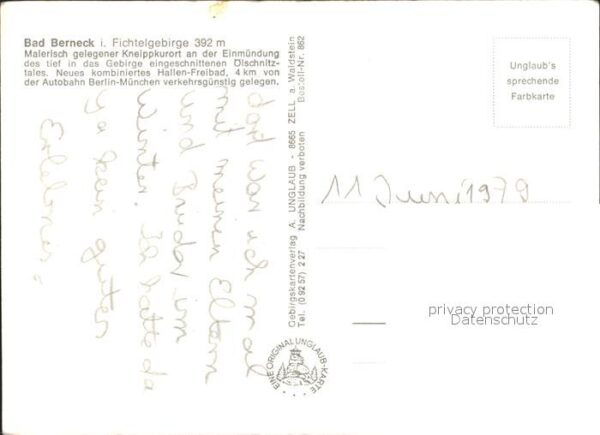 Bad Berneck i. Fichtelgebirge 392 m
Malerisch gelegener Kneippkurort an der Einmündung
des tief in das Gebirge eingeschnittenen Ölschnitz-
tales. Neues kombiniertes Hallen-Freibad, 4 km von
der Autobahn Berlin-München verkehrsgünstig gelegen.
dort war ich mal
mit meinen Eltern
und Bruder im
Winter. Ich hatte da
ja kein guten
Erlebnis.
Gebirgskartenverlag A. UNGLAUB - 8665 ZELL a. Waldstein
Tel. (0 92 57) 2 27 Nachbildung verboten Bestell-Nr. 862
EINE ORIGINAL UNGLAUB-KARTE
Unglaub's
sprechende
Farbkarte
11 Juni 1979
privacy protection
Datenschutz